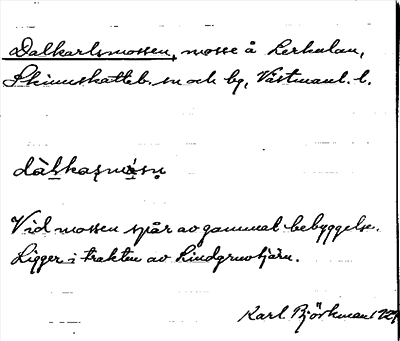 Dalkarlsmossen, mosse å Lerkulan,
Skinnskatteb. sn och bg, Västmanl. l.
dàlkasmósn
Vid mossen spår av gammal bebyggelse.
Ligger i trakten av Lindgruvtjärn.
Karl Björkman